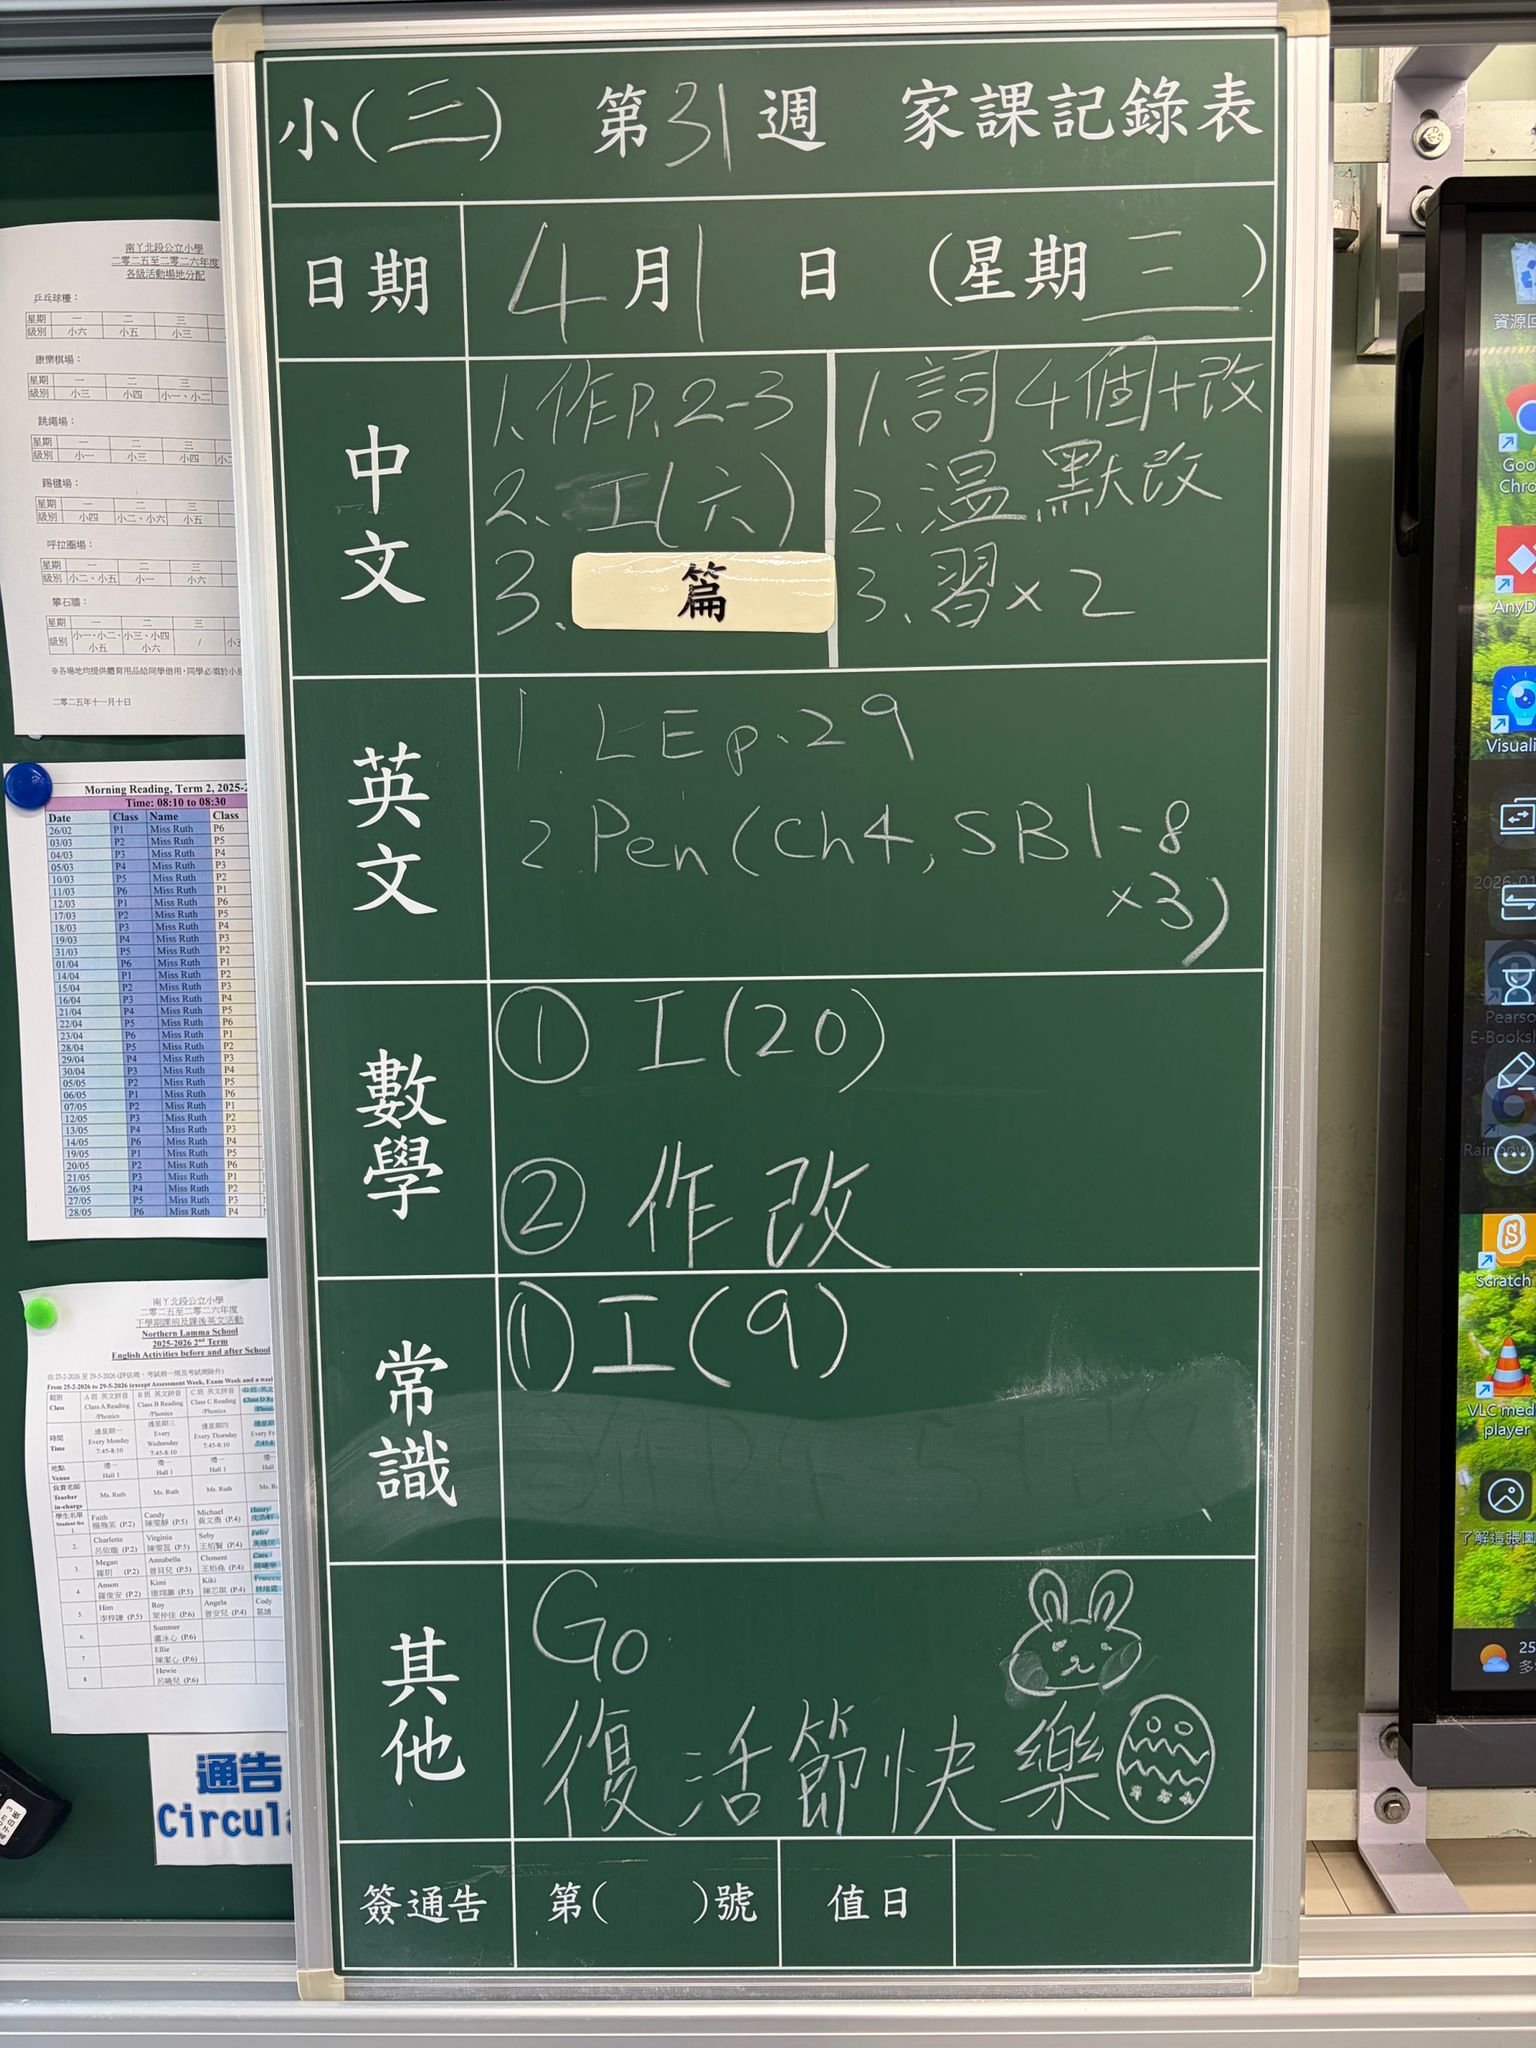 小(三) 第31週 家課記錄表
日期 4月1日 (星期三)
中文
1.作P.2-3
2.工(六)
3.篇
1.詞4個+改
2.溫默改
3.習×2
英文
1. LE p.29
2. Pen (Ch4, SB1-8
×3)
數學
① 工(20)
② 作改
常識
① 工(9)
其他
Go
復活節快樂
簽通告 第( )號 值日
南丫北段公立小學
二零二五至二零二六年度
各級活動場地分配
乒乓球檯：
星期 一 二 三
級別 小六 小五 小三
康樂棋場：
星期 一 二 三
級別 小三 小四 小一、小二
跳繩場：
星期 一 二 三
級別 小一 小三 小四
踢毽場：
星期 一 二 三
級別 小四 小二、小六 小五
呼拉圈場：
星期 一 二 三
級別 小二、小五 小一 小六
攀石牆：
星期 一 二 三
級別 小一、小二、小五 小三、小四 小六 /
二零二五年十一月十日
Morning Reading, Term 2, 2025-2
Time: 08:10 to 08:30
Date Class Name Class
26/02 P1 Miss Ruth P6
03/03 P2 Miss Ruth P5
04/03 P3 Miss Ruth P4
05/03 P4 Miss Ruth P3
10/03 P5 Miss Ruth P2
11/03 P6 Miss Ruth P1
12/03 P1 Miss Ruth P6
17/03 P2 Miss Ruth P5
18/03 P3 Miss Ruth P4
19/03 P4 Miss Ruth P3
31/03 P5 Miss Ruth P2
01/04 P6 Miss Ruth P1
14/04 P1 Miss Ruth P2
15/04 P2 Miss Ruth P3
16/04 P3 Miss Ruth P4
21/04 P4 Miss Ruth P5
22/04 P5 Miss Ruth P6
23/04 P6 Miss Ruth P1
28/04 P5 Miss Ruth P2
29/04 P4 Miss Ruth P3
30/04 P3 Miss Ruth P4
05/05 P2 Miss Ruth P5
06/05 P1 Miss Ruth P6
07/05 P2 Miss Ruth P1
12/05 P3 Miss Ruth P2
13/05 P4 Miss Ruth P3
14/05 P6 Miss Ruth P4
19/05 P1 Miss Ruth P5
20/05 P2 Miss Ruth P6
21/05 P3 Miss Ruth P1
26/05 P4 Miss Ruth P2
27/05 P5 Miss Ruth P3
28/05 P6 Miss Ruth P4
南丫北段公立小學
二零二五至二零二六年度
下學期課前及課後英文活動
Northern Lamma School
2025-2026 2nd Term
English Activities before and after School
通告
Circul
資源回
Goo
Chro
AnyD
Visuali
Pearso
E-Books
Rainbow
Scratch
VLC med
player
了解這張圖
25